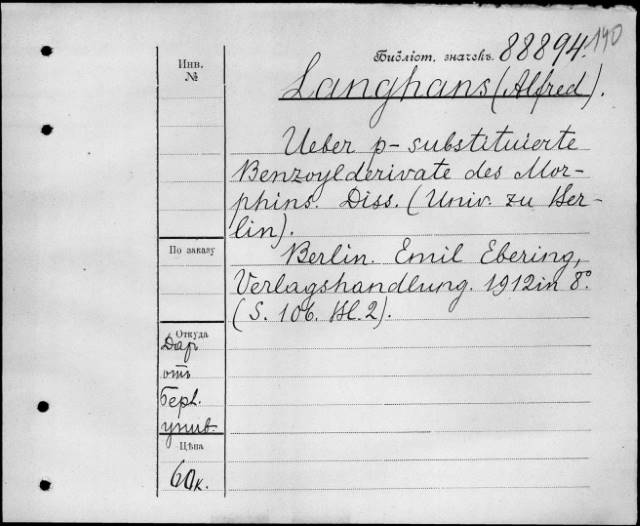 Библіот. значекъ. 88894. 140
Инв.
№
Langhans (Alfred).
Ueber p-substituierte
Benzoylderivate des Mor-
phins. Diss. (Univ. zu Ber-
lin).
По заказу
Berlin. Emil Ebering,
Verlagshandlung. 1912 in 8°.
(S. 106. Bl. 2).
Откуда
Даръ
отъ
Берл.
унив.
Цѣна
60 к.